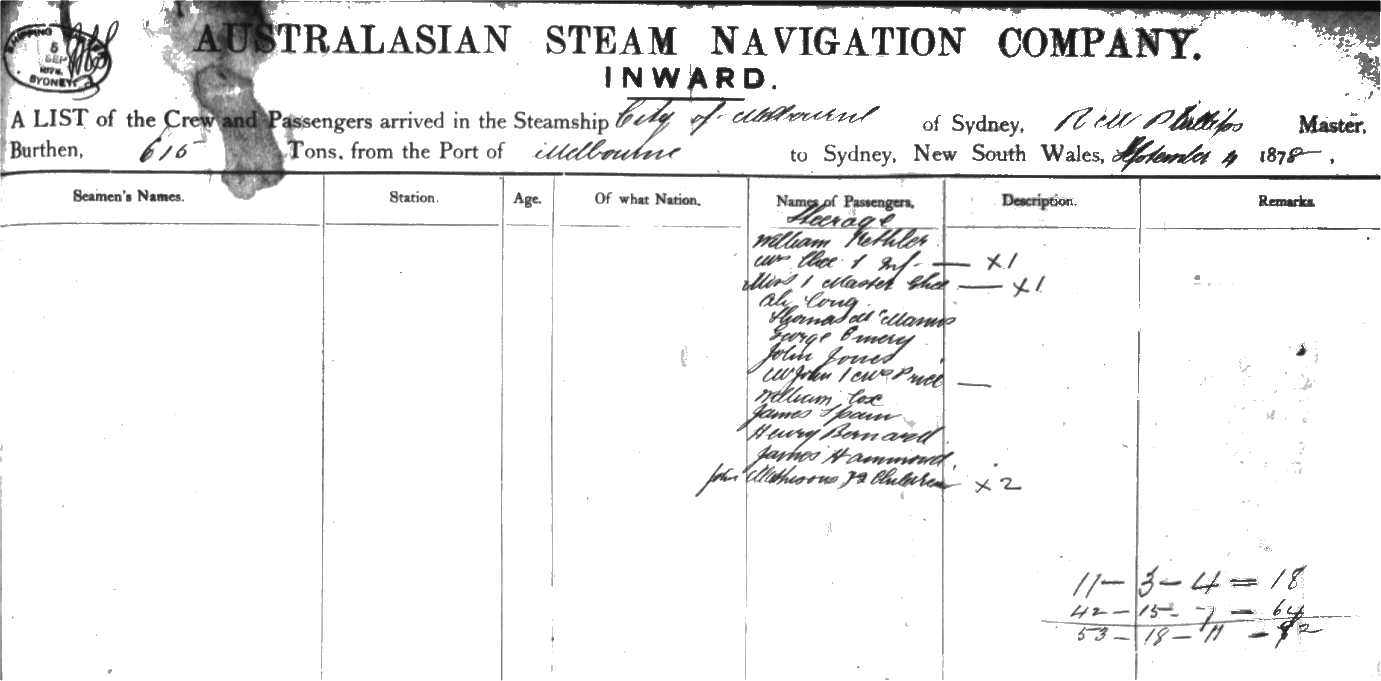 SHIPPING
5
SEP
1878
SYDNEY
AUSTRALASIAN STEAM NAVIGATION COMPANY.
INWARD.
A LIST of the Crew and Passengers arrived in the Steamship City of Melbourne of Sydney, R M Phillips Master,
Burthen, 615 Tons, from the Port of Melbourne to Sydney, New South Wales, September 4 1878,
Seamen's Names. Station. Age. Of what Nation. Names of Passengers, Description. Remarks.
Steerage
William
Mrs 1 Inf. — x1
Miss 1 Master — x1
Ah Cong
Thomas McManus
George Emery
John Jones
Mr John 1 Mrs Price —
William Cox
James Spain
Henry Bernard
James Hammond.
John Mathisons & 2 Children x2
11 — 3 — 4 = 18
42 — 15 — 7 — 64
53 — 18 — 11 — 82